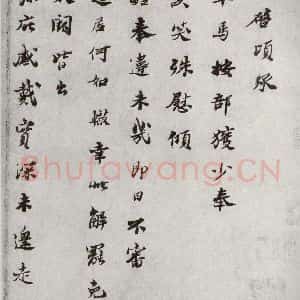 啓頃承
馬按部獲少奉
笑殊慰傾
奉違未幾即日不審
居何如幸此解罷免
闕皆出
庇感戴實深未遑走
Shufawang.CN